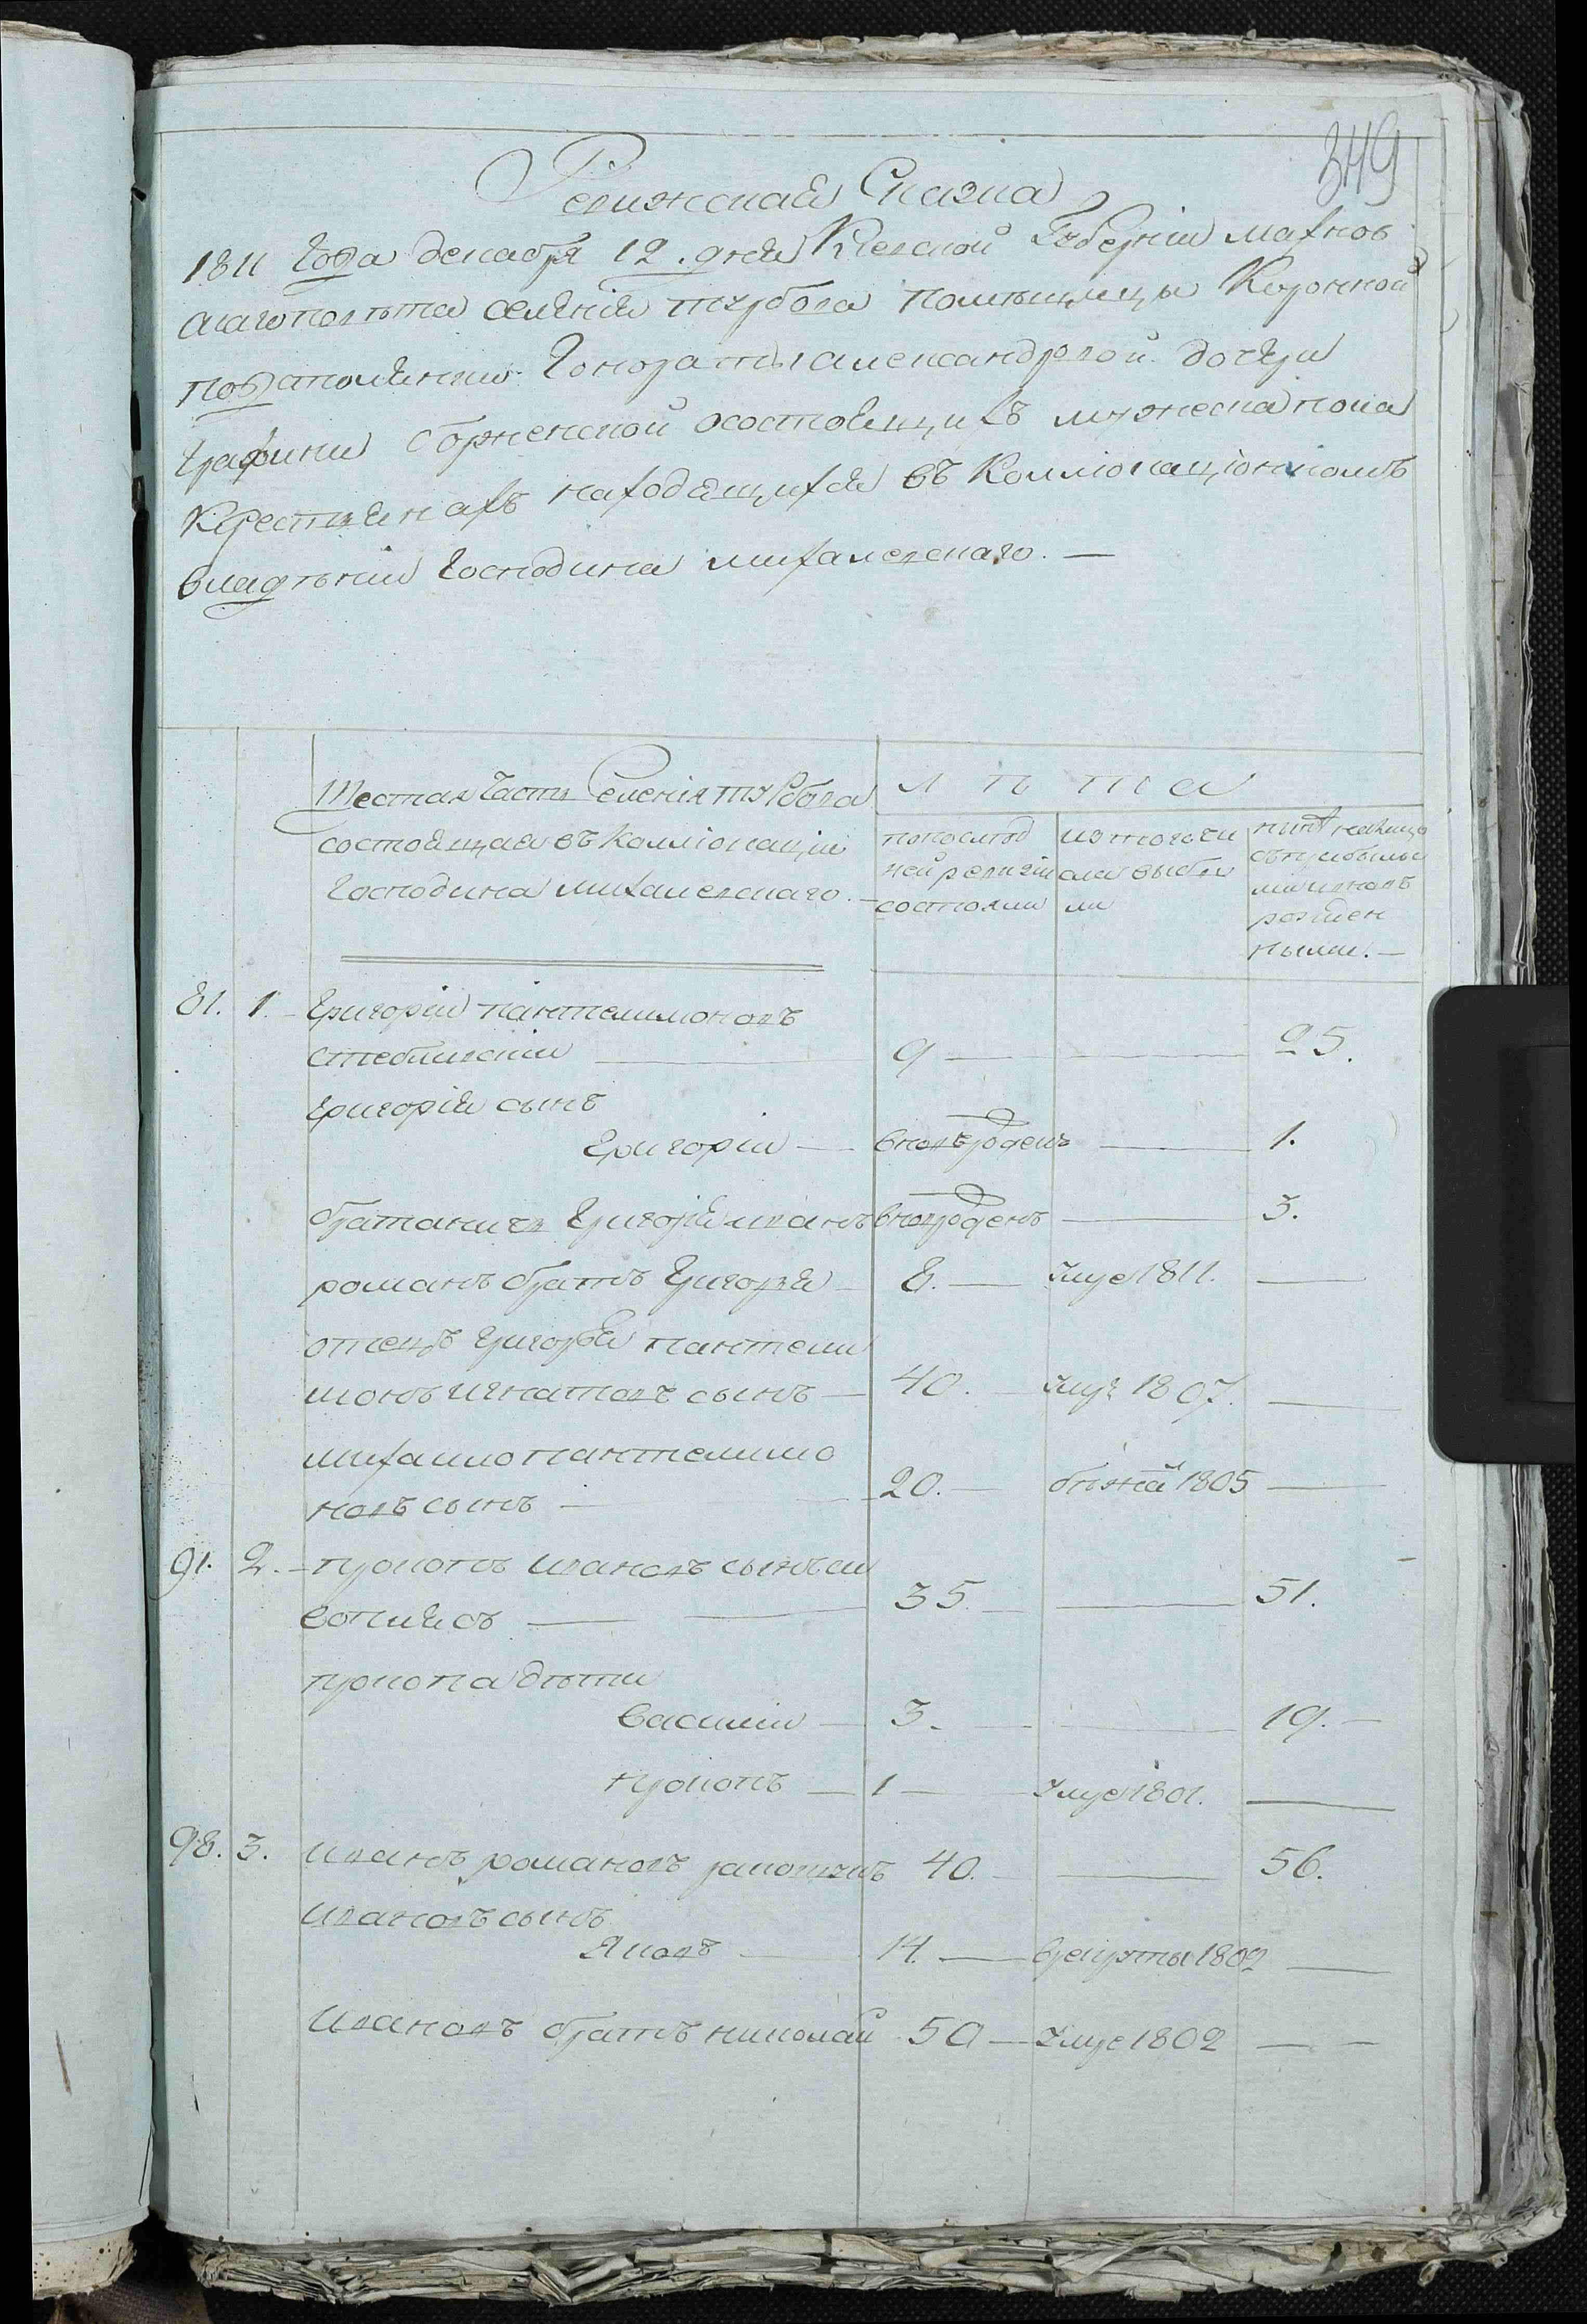 349
Ревижская Сказка
1811 Года декабря 12. дня Киевской Губерніи махнов
скаго повѣта селѣнія турбова помѣщицы Коронной
Гонораты александровой дочери
Графини Борженской осостоящихъ мужеска пола
Крестянахъ находящихся въ Коллокаціонномъ
владѣніи Господина михалевскаго. —
Шестая Часть Селенія турбова
состоящая въ Коллокаціи
Господина михалевскаго. —
лѣта
попослѣд
ней ревизіи
состояли
изтого чи
сла выбы
ли
нинѣ налицо
съприбылы
ми вновь
рожден
ными. —
81. 1. Григорій пантелимоновъ
стебливскій — 9 — — 25.
Григорія сынъ
Григорій — вновьрожденъ — 1.
братаничъ Григорія иванъ вновьрожденъ — 3.
романъ братъ Григорія — 8. — умре 1811. —
отецъ Григорія пантели
монъ игнатовъ сынъ — 40. умре 1807. —
михаило пантелимо
новъ сынъ — 20. — бѣжа 1805 —
91. 2. — прокопъ ивановъ сынъ
35. — — 51.
прокопа дѣти
василій — 3. — — 19. —
прокопъ — 1 — умре 1801. —
98. 3. иванъ романовъ 40. — — 56.
ивановъ сынъ
Яковъ — 14. — врекруты 1802 —
ивановъ братъ николай 50 — умре 1802 — —